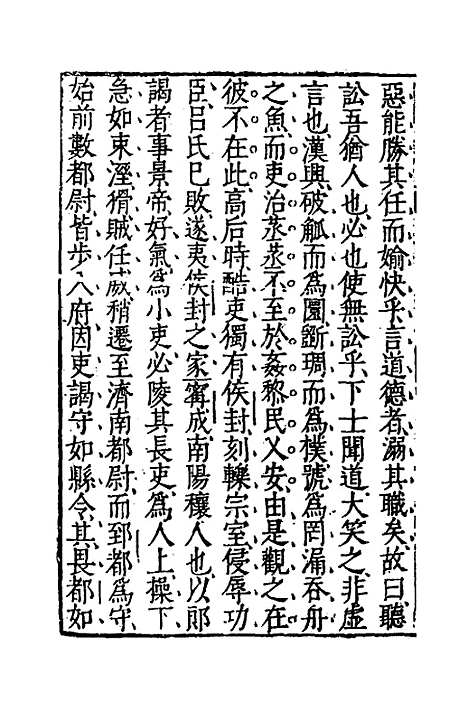 惡能勝其任而婾快乎言道德者溺其職矣故曰聽
訟吾猶人也必也使無訟乎下士聞道大笑之非虛
言也漢興破觚而爲圜斲琱而爲樸號爲罔漏吞舟
之魚而吏治蒸蒸不至於姦黎民乂安由是觀之在
彼不在此高后時酷吏獨有侯封刻轢宗室侵辱功
臣吕氏已敗遂夷侯封之家甯成南陽穰人也以郎
謁者事景帝好氣爲小吏必陵其長吏爲人上操下
急如束溼猾賊任威稍遷至濟南都尉而郅都爲守
始前數都尉皆步入府因吏謁守如縣令其畏都如